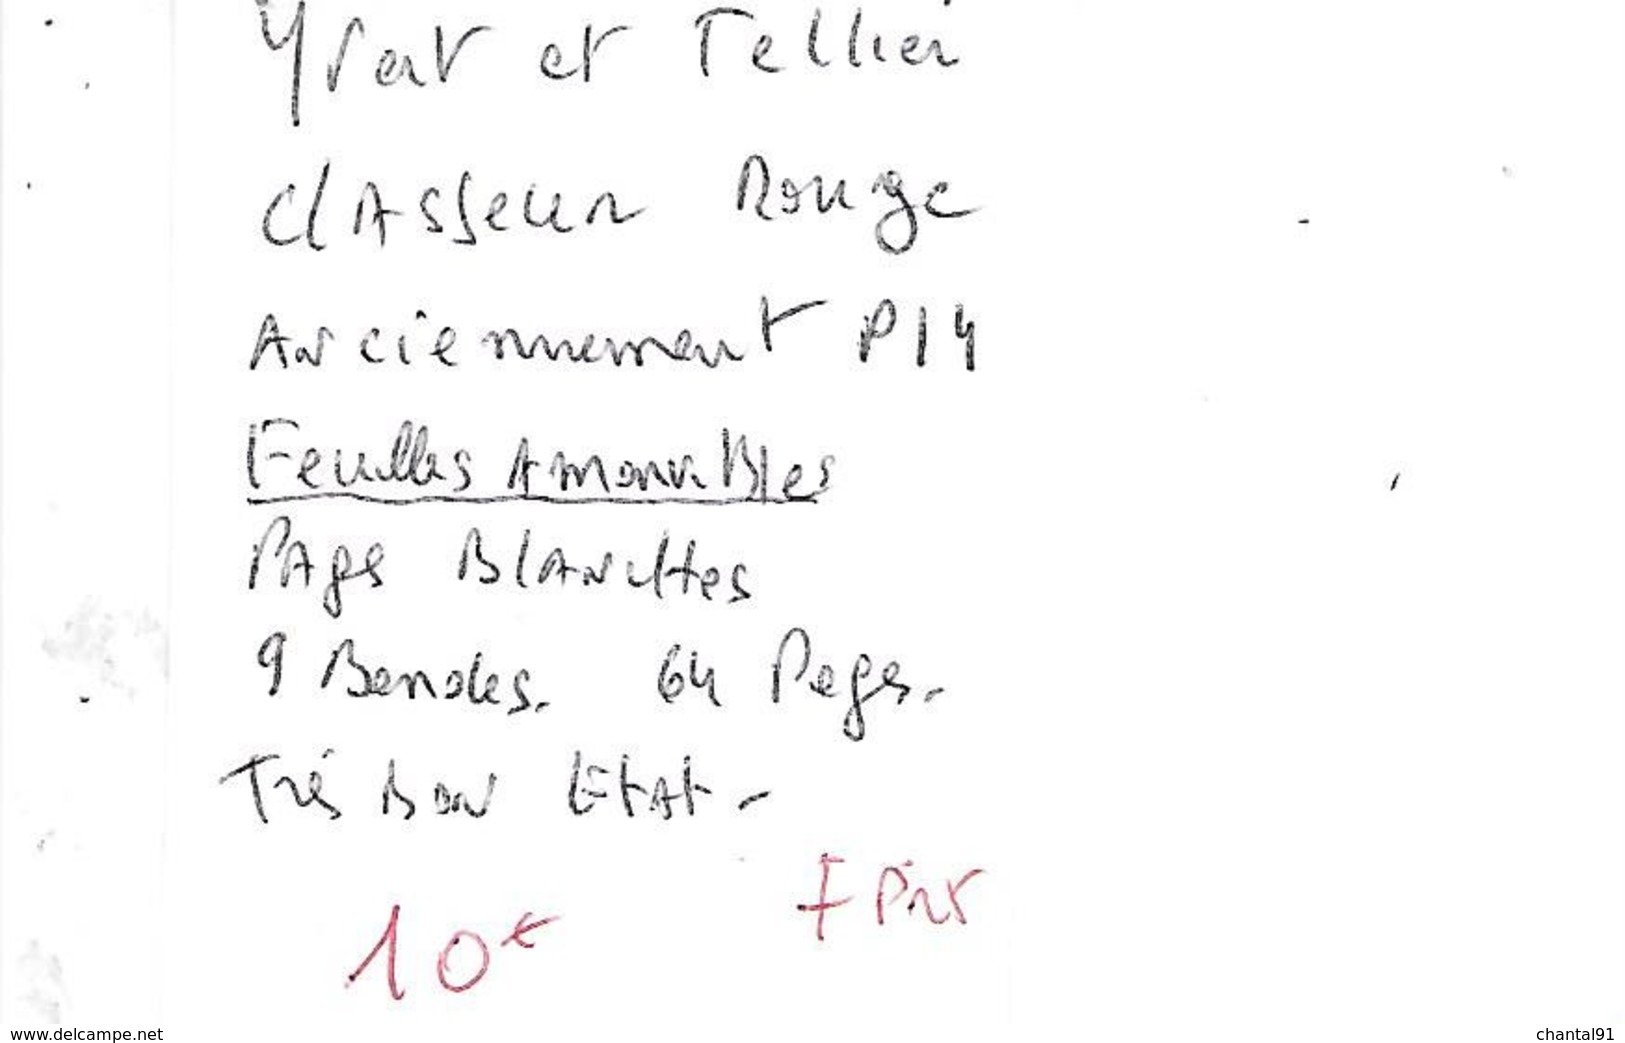 Yvert et Tellier
ClAsseur Rouge
ANciennement P14
Feuilles AmoviBles
PAges BlANcHes
9 Bandes. 64 Pages.
Très BoN EtAt -
10€
F Port
www.delcampe.net
chantal91